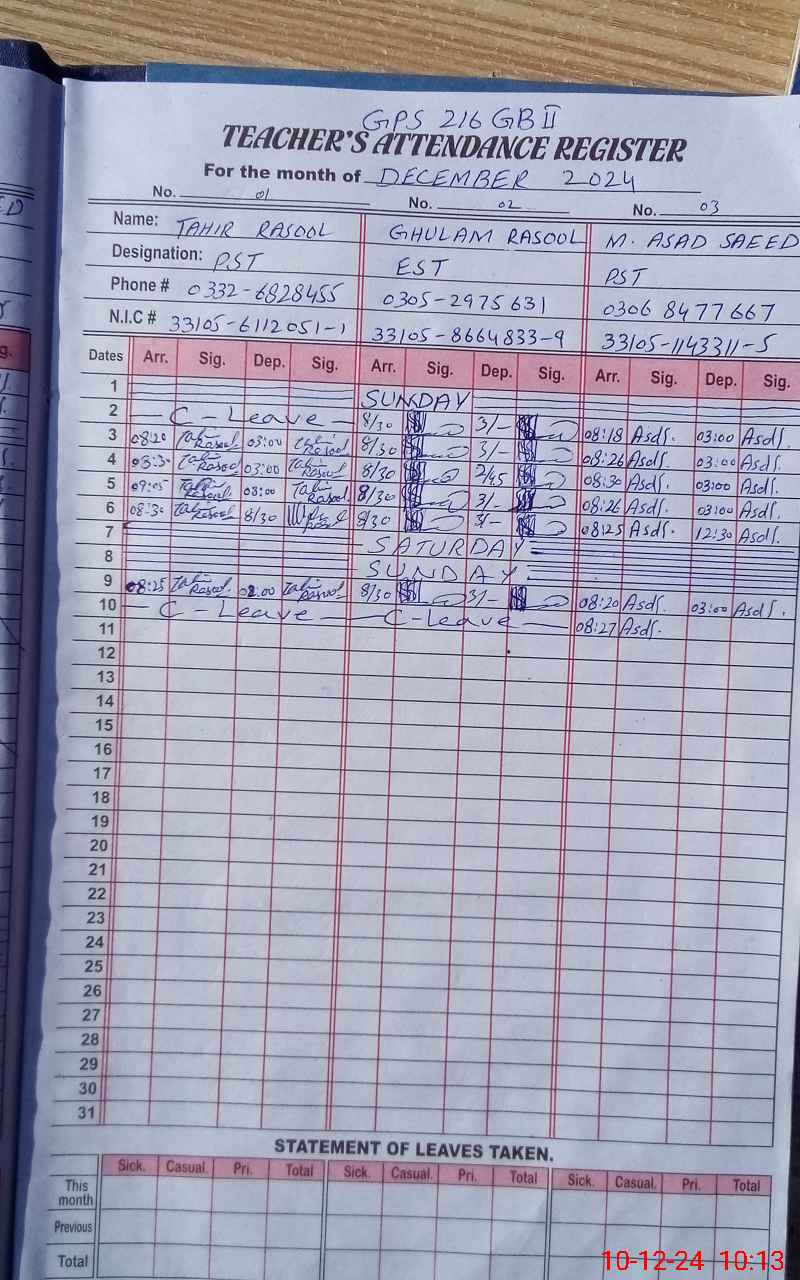 GPS 216 GB II
TEACHER'S ATTENDANCE REGISTER
For the month of DECEMBER 2024
No. 01 No. 02 No. 03
Name: TAHIR RASOOL GHULAM RASOOL M. ASAD SAEED
Designation: PST EST PST
Phone # 0332-6828455 0305-2975631 0306 8477667
N.I.C # 33105-6112051-1 33105-8664833-9 33105-1143311-5
Dates Arr. Sig. Dep. Sig. Arr. Sig. Dep. Sig. Arr. Sig. Dep. Sig.
1 SUNDAY
2 C-Leave 8/30 3/- 08:18 Asdf. 03:00 Asdf.
3 08:20 Tahir Rasool 03:00 Tahir Rasool 8/30 3/- 08:26 Asdf. 03:00 Asdf.
4 08:30 Tahir Rasool 03:00 Tahir Rasool 8/30 2/45 08:30 Asdf. 03:00 Asdf.
5 09:05 Tahir Rasool 03:00 Tahir Rasool 8/30 3/- 08:26 Asdf. 03:00 Asdf.
6 08:30 Tahir Rasool 8/30 8/30 3/- 08:25 Asdf. 12:30 Asdf.
7 SATURDAY
8 SUNDAY
9 08:25 Tahir Rasool 02:00 Tahir Rasool 8/30 3/- 08:20 Asdf. 03:00 Asdf.
10 C-Leave C-Leave 08:27 Asdf.
11
12
13
14
15
16
17
18
19
20
21
22
23
24
25
26
27
28
29
30
31
STATEMENT OF LEAVES TAKEN.
Sick. Casual. Pri. Total Sick. Casual. Pri. Total Sick. Casual. Pri. Total
This month
Previous
Total
10-12-24 10:13